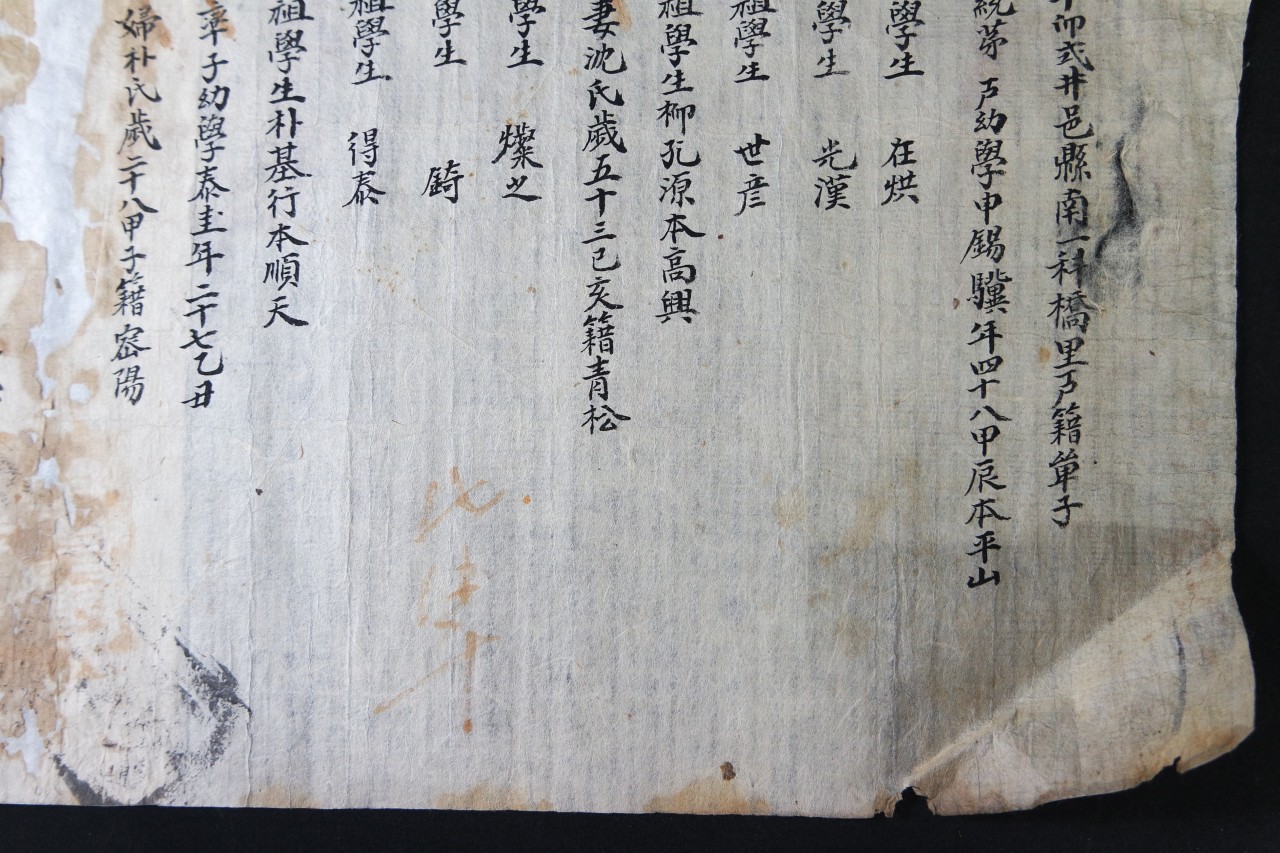 卯式井邑縣南一科橋里戶籍單子
統第 戶幼學申錫驥年四十八甲辰本平山
學生 在烘
學生 光漢
祖學生 世彦
祖學生柳孔源本高興
妻沈氏歲五十三己亥籍青松
學生 燦之
學生 錡
祖學生 得泰
祖學生朴基行本順天
率子幼學泰圭年二十七乙丑
婦朴氏歲二十八甲子籍密陽